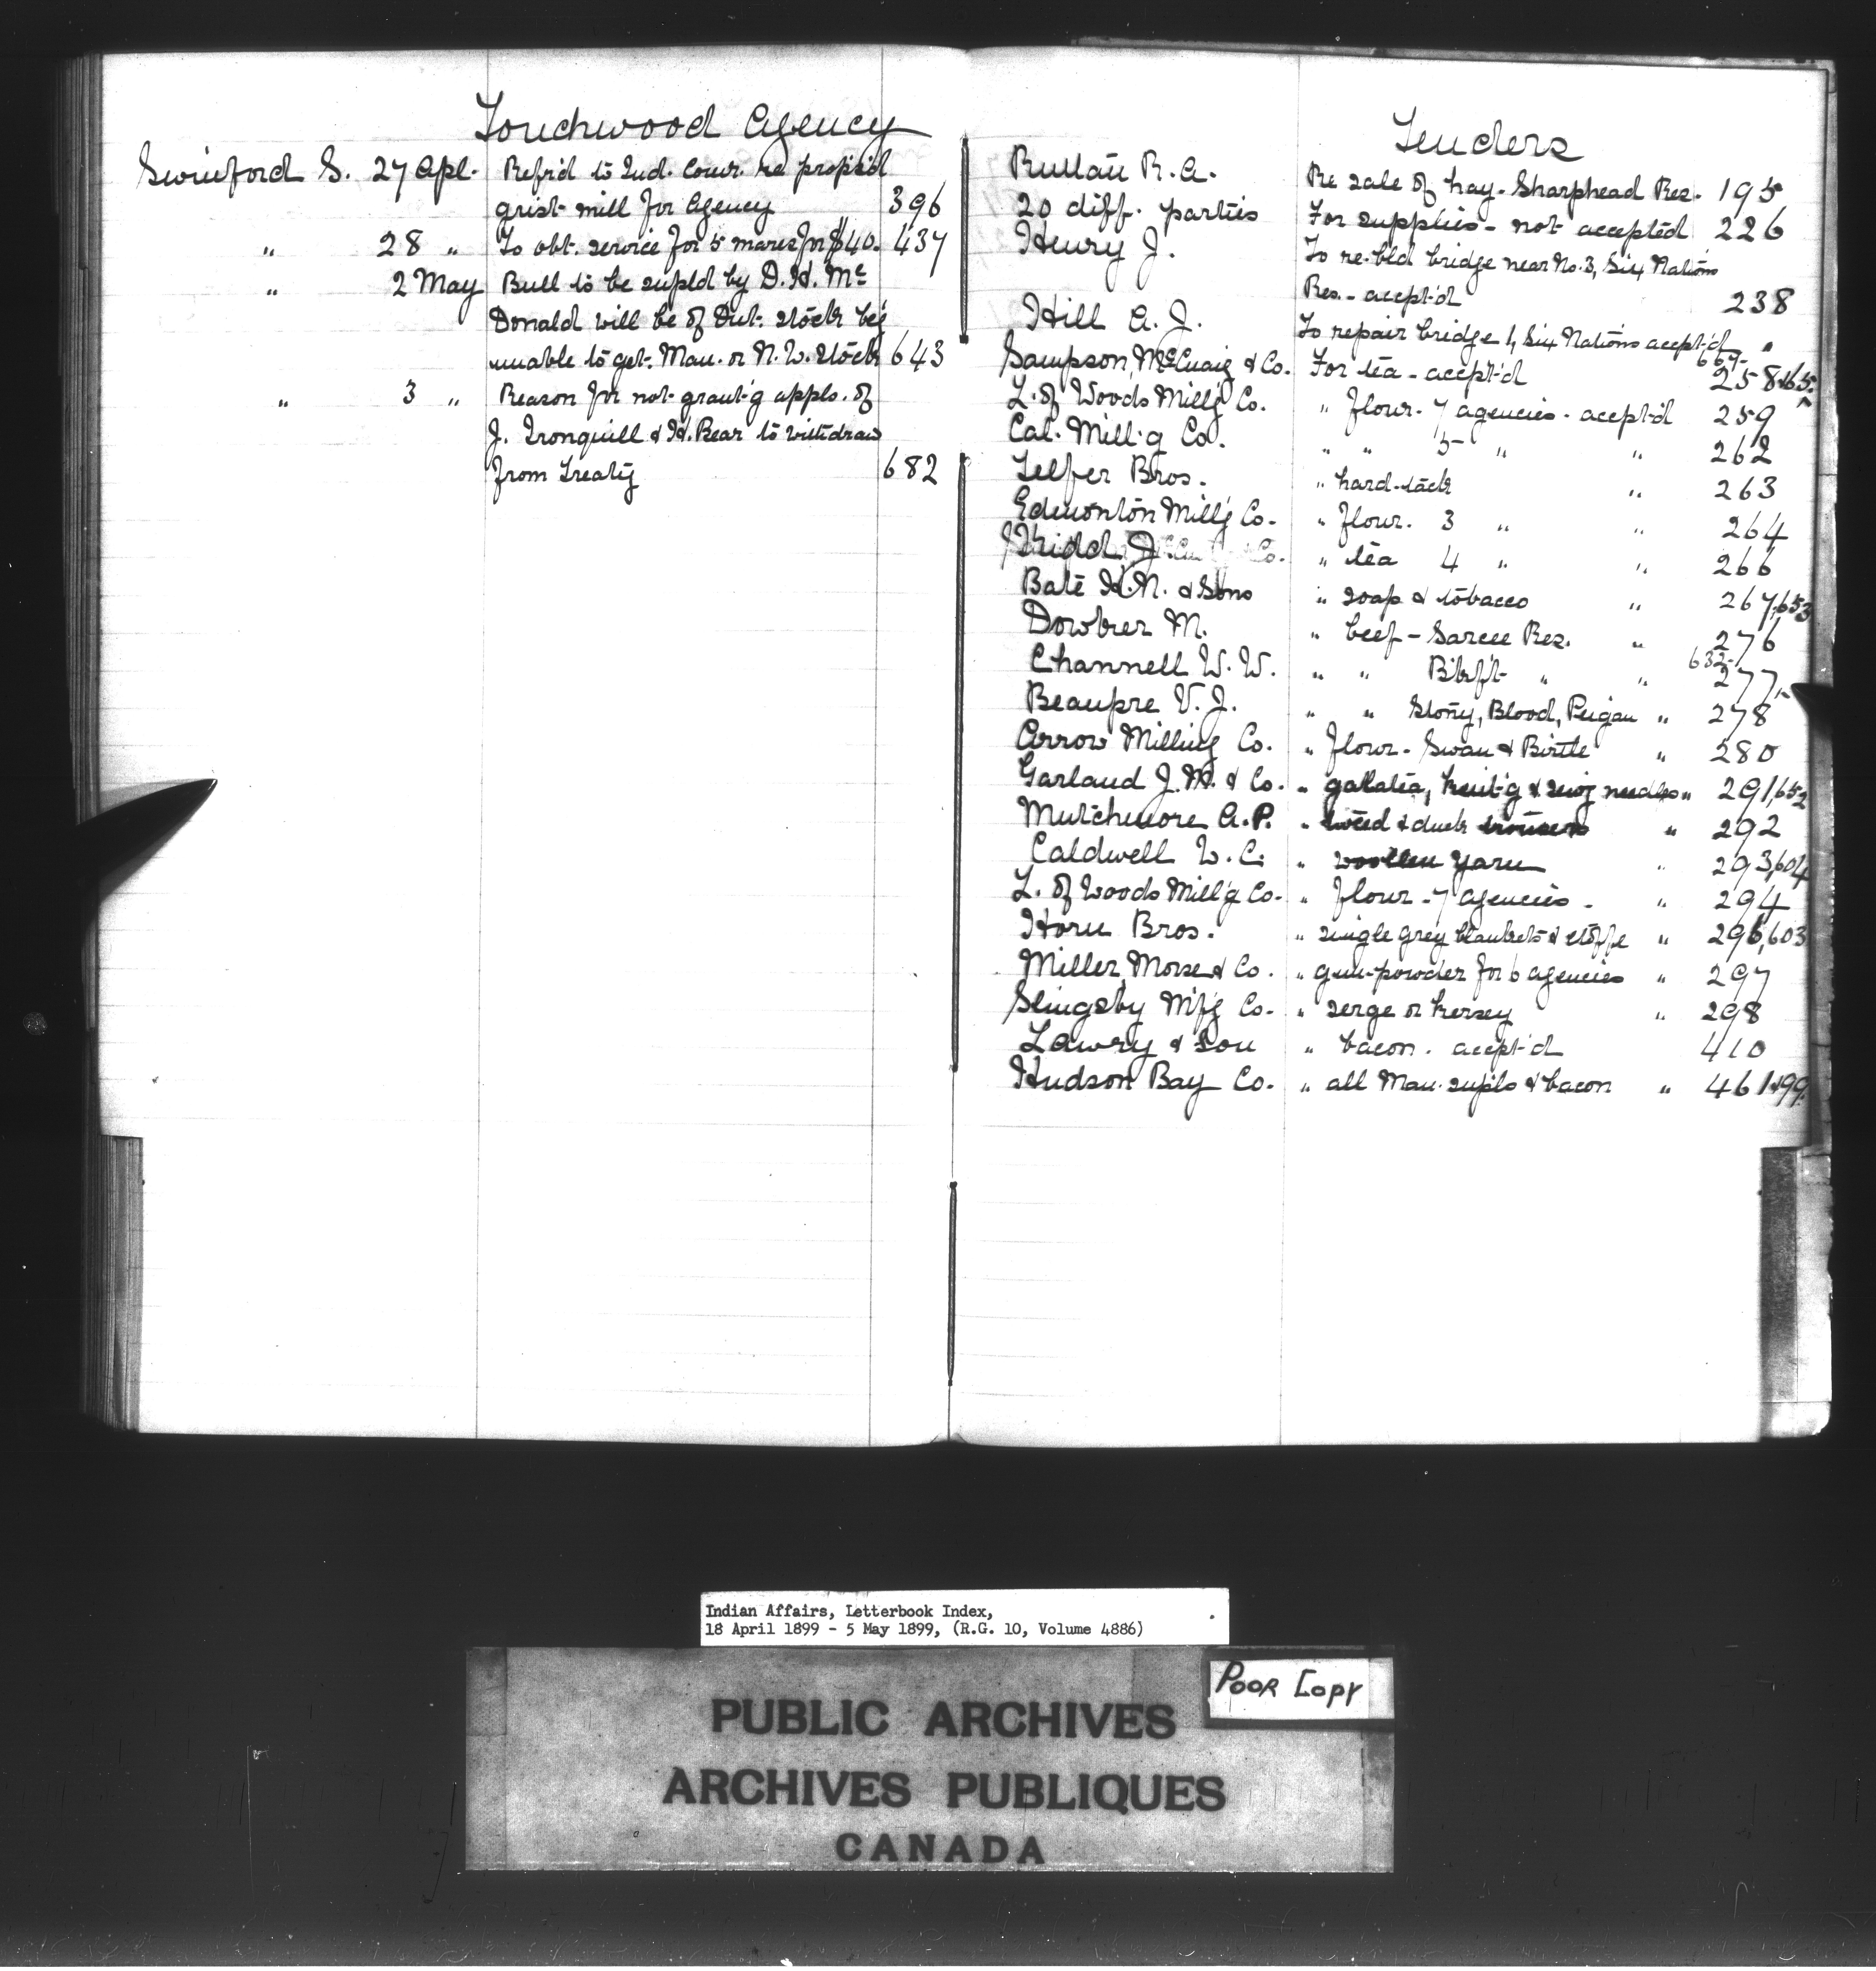 Touchwood Agency
Swinford S. 27 Apl. Refrd to Ind. Comr. re propsd
grist mill for Agency 396
" 28 " To obt. service for 5 mares for $40. 437
" 2 May Bull to be supld by D. H. Mc
Donald will be of Out. stock beg
unable to get Man. or N. W. stock 643
" 3 " Reason for not grant'g appls. of
J. Tronquill & H. Bear to withdraw
from Treaty 682
Tenders
Ruttan R. A. Re sale of hay - Sharphead Res. 195
20 diff. parties For supplies - not accepted 226
Henry J. To re-bld bridge near No. 3, Six Nations
Res. - accept'd 238
Hill A. J. To repair bridge 1, Six Nations accept'd "
Sampson, McCuaig & Co. For tea - accept'd 258
L. of Woods Mill'g Co. " flour - 7 agencies - accept'd 259
Cal. Mill'g Co. " " 5 " " 262
Telfer Bros. " hard-tack " 263
Edmonton Mill'g Co. " flour. 3 " " 264
Kidd J. " tea 4 " " 266
Bate H. N. & Sons " soap & tobacco " 267,653
Dowbrer M. " beef - Sarcee Res. " 276
632
Channell W. W. " " Blkft " " 277
Beaupre V. J. " " Stony, Blood, Peigan " 278
Arrow Milling Co. " flour - Swan & Birtle " 280
Garland J. M. & Co. " galatea, knit'g & sew'g needles " 291,652
Mutchmore A. P. " tweed & duck trousers " 292
Caldwell W. C. " woollen yarn " 293,604
L. of Woods Mill'g Co. " flour - 7 agencies - " 294
Horn Bros. " single grey blankets & stoffe " 296,603
Miller, Morse & Co. " gun-powder for 6 agencies " 297
Slingsby M'f'g Co. " serge or kersey " 298
Lawry & Son " bacon. accept'd 410
Hudson Bay Co. " all Man. supls & bacon " 461,499
Indian Affairs, Letterbook Index,
18 April 1899 - 5 May 1899, (R.G. 10, Volume 4886)
POOR COPY
PUBLIC ARCHIVES
ARCHIVES PUBLIQUES
CANADA